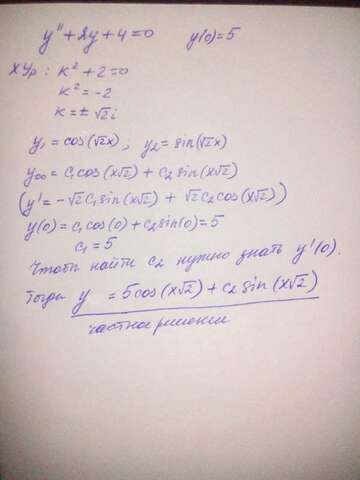 y'' + 2y + 4 = 0 y(0) = 5
ХУр: k² + 2 = 0
k² = -2
k = ± √2 i
y₁ = cos(√2x); y₂ = sin(√2x)
y₀₀ = c₁cos(x√2) + c₂ sin(x√2)
(y' = -√2 c₁ sin(x√2) + √2 c₂ cos(x√2))
y(0) = c₁cos(0) + c₂ sin(0) = 5
c₁ = 5
Чтобы найти c₂ нужно знать y'(0).
Тогда y = 5cos(x√2) + c₂ sin(x√2)
частное решение